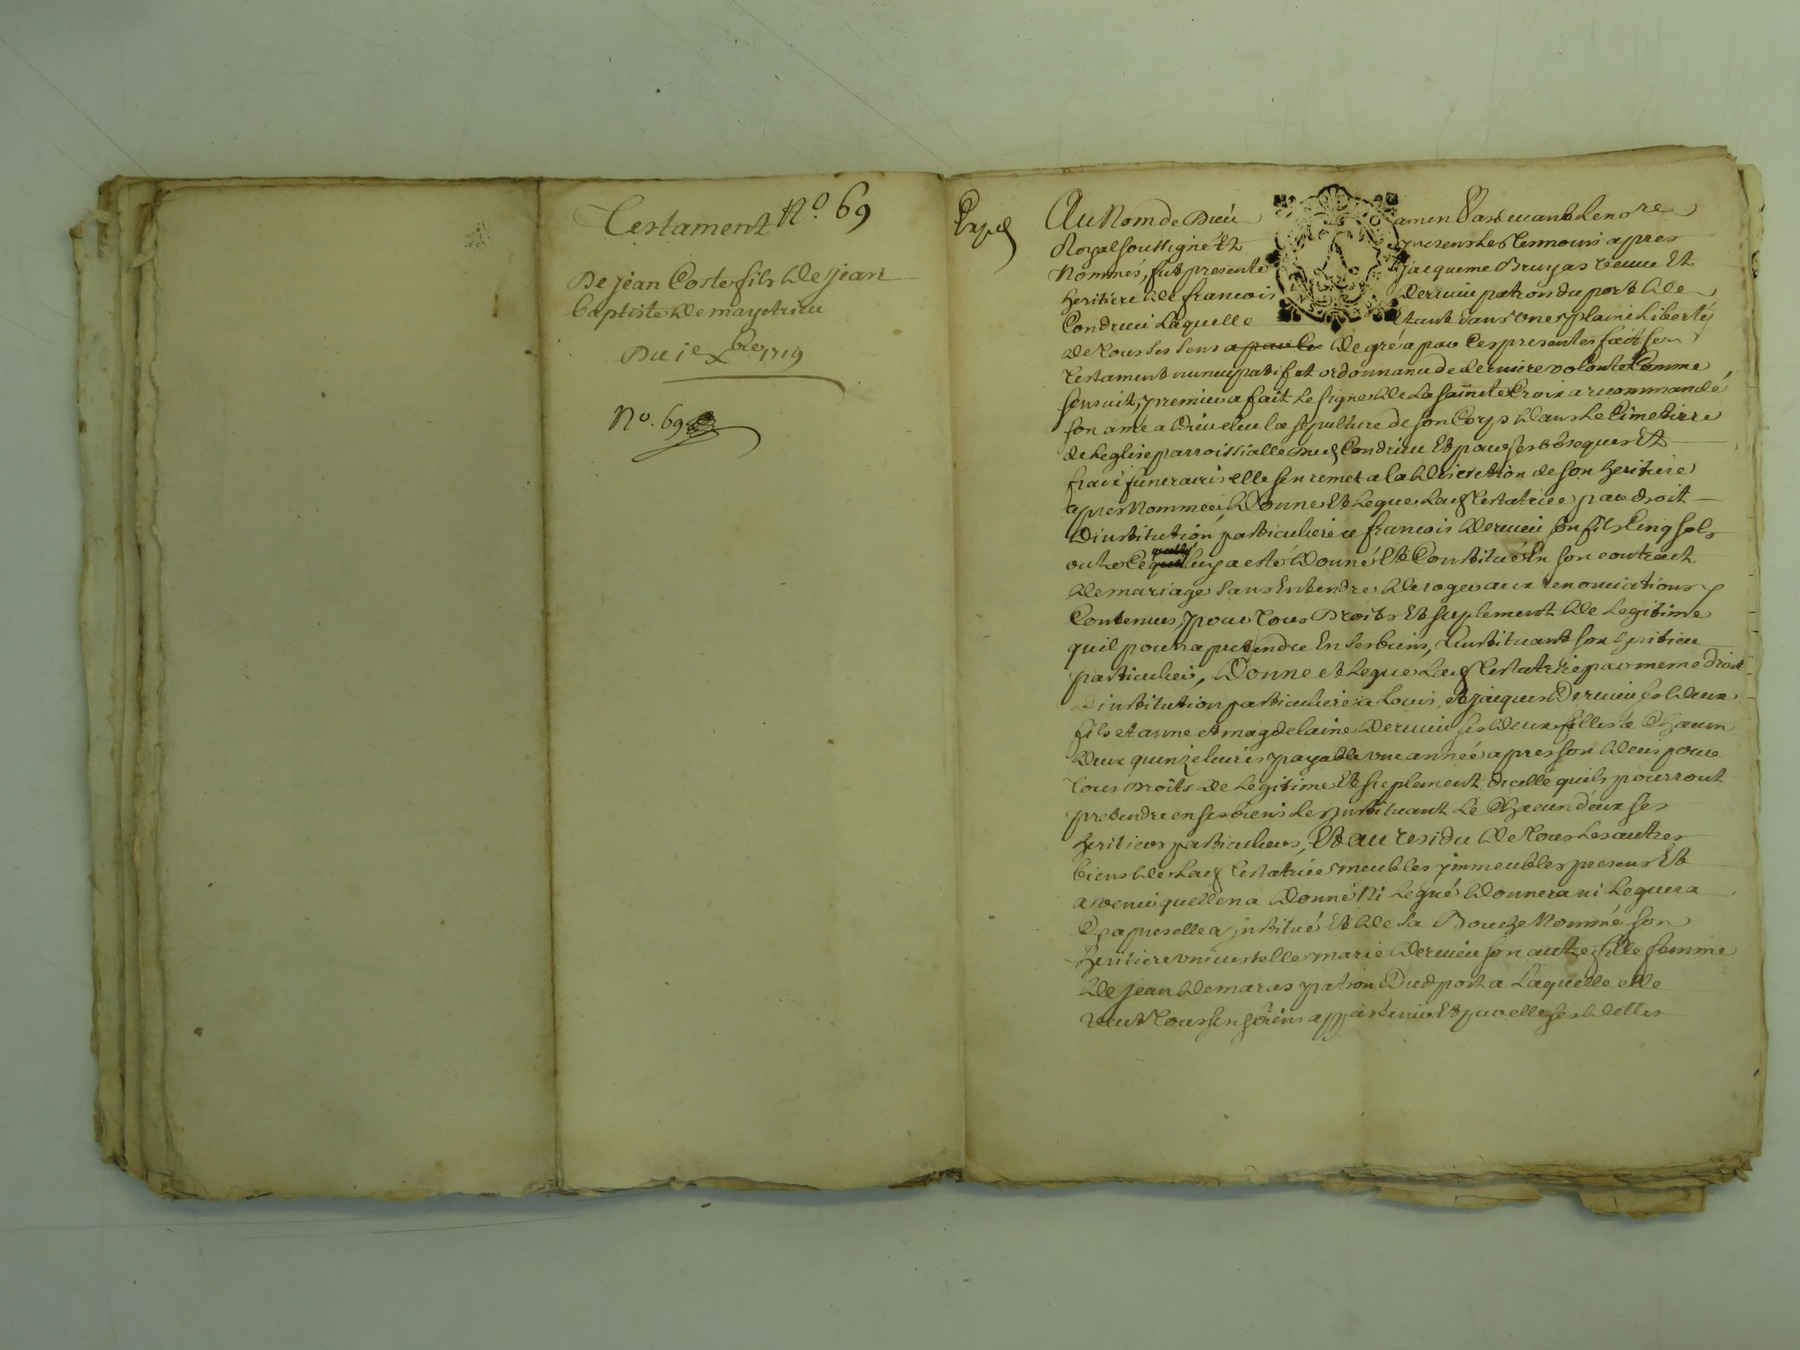 Testament N.o 69
De jean Coste fils de jean
baptiste de mayotrieu
Du 1e Xbre 1719
No. 69
Exped
Au Nom de Dieu amen Pardevant Le nore
Royal soussigné Et presens Les Tesmoins apres
Nommés, fut presente jacqueme Bruyas veuve Et
heritiere de francois dervieu patron du port de
Condrieu Laquelle Etant dans une plaine Liberty
de Tous ses sens de gré a par Ces presentes fait son
Testament nuncupatif et ordonnance de derniere volonte Comme
sensuit, premier a fait Le signe de La sainte Croix a recommandé
son ame a Dieu eleu La sepulture de son Corps dans Le Cimetierre
de Leglise parroissialle dud Condrieu Et pour ses obseques Et
fraix funerairs elle sen remet a la discretion de son heritiere
apres Nommée, donne Et Legue Lad Testatrice par droit
Dinstitution particuliere a francois dervieu son fils Cinq sols
outre Ce quelle luy a esté donné Et Constitué En son contract
de mariage sans Entendre deroger aux renonciations
Contenues, pour Tous Droits Et suplement de Legitime
quil pourra pretendre En ses biens, Linstituant son heritier
particulier, Donne et Legue Lad Testatrice par meme droit
Dinstitution particuliere a Louis et jacques Dervieu ses deux
fils et anne et magdelaine dervieu ses deux filles a Chacun
deux quinze livres payable une année apres son deces pour
Tous Droits de Legitime Et suplement dicelle quils pourront
pretendre en ses biens Les instituant Le Chacun deux ses
heritiers particuliers, Et au residu de Tous Les autres
biens de Lad Testatrice meubles immeubles presens Et
avenir quelle na donné Ni Legué donnera ni Leguera
Cy apres elle a institué Et de sa Bouche Nommé son
heritiere universelle marie dervieu son autre fille femme
de jean demaras patron Dud port a Laquelle elle
veut Tous ses biens appartenir Et par elle ses dettes